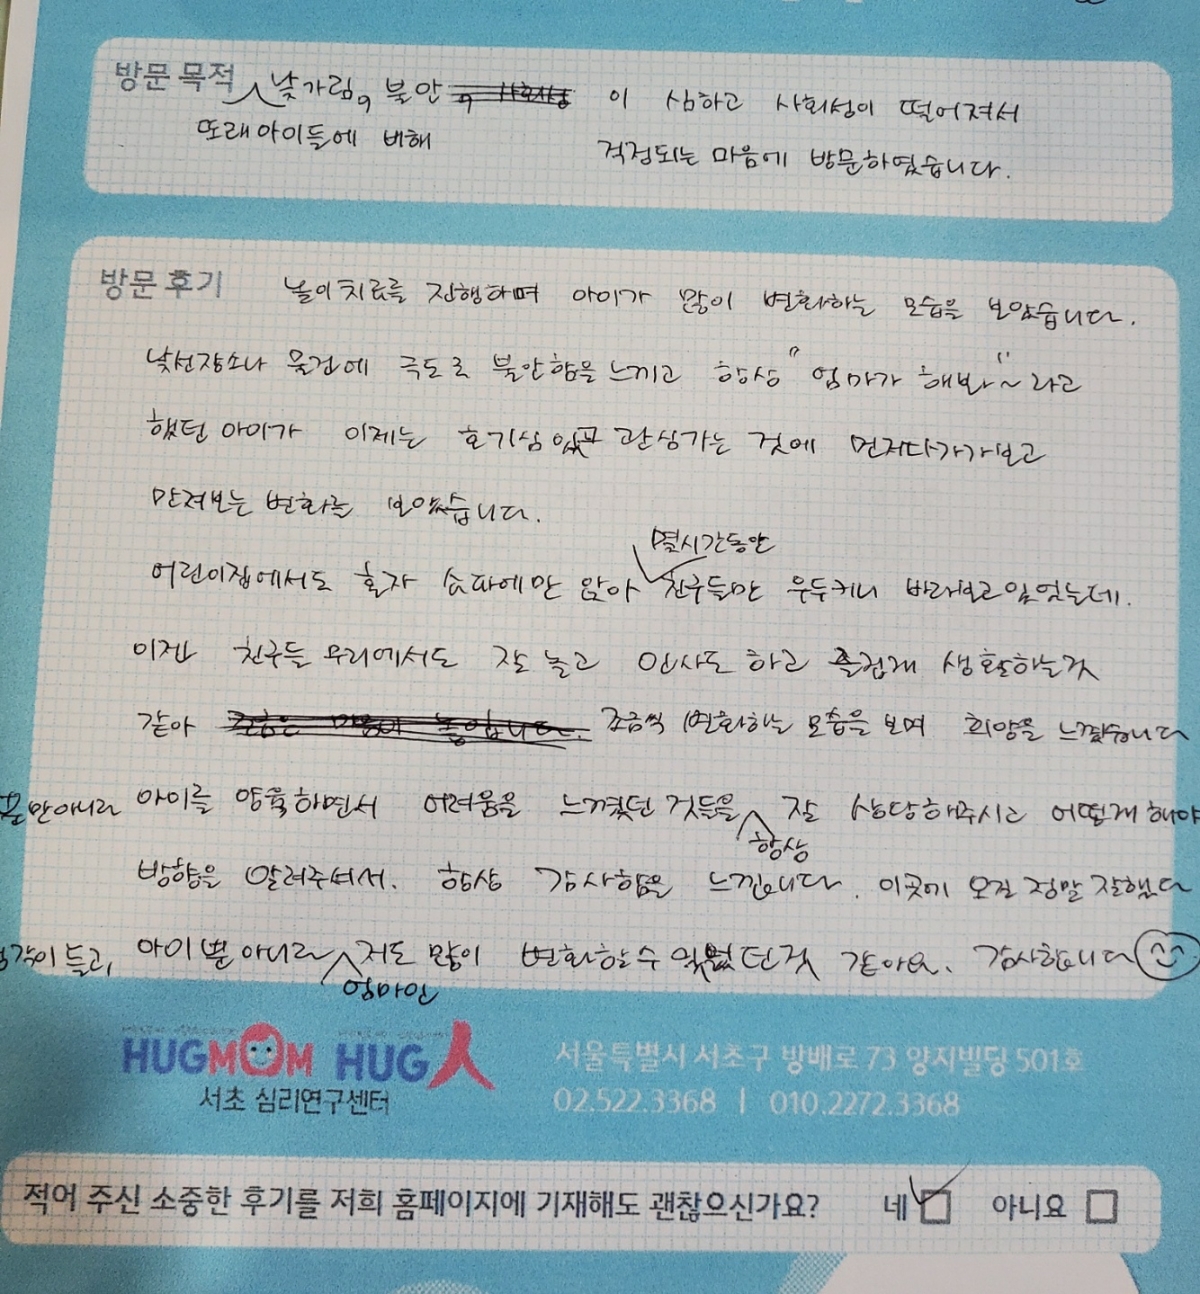 방문 목적 낯가림, 불안 이 심하고 사회성이 떨어져서
또래아이들에 비해 걱정되는 마음에 방문하였습니다.
방문 후기 놀이치료를 진행하며 아이가 많이 변화하는 모습을 보았습니다.
낯선장소나 물건에 극도로 불안함을 느끼고 항상 "엄마가 해봐"~ 라고
했던 아이가 이제는 호기심있고 관심가는 것에 먼저다가가보고
만져보는 변화를 보였습니다.
몇시간동안
어린이집에서도 혼자 쇼파에만 앉아 친구들만 우두커니 바라보고있었는데.
이젠 친구들 무리에서도 잘 놀고 인사도 하고 즐겁게 생활하는것
같아 조금씩 변화하는 모습을 보며 희망을 느꼈습니다
뿐만아니라 아이를 양육하면서 어려움을 느꼈던 것들을 잘 상담해주시고 어떻게 해야
항상
방향을 알려주셔서. 항상 감사함을 느낍니다. 이곳에 오길 정말 잘했다
생각이 들고, 아이뿐 아니라 저도 많이 변화할수 있었던것 같아요. 감사합니다
엄마인
HUGMOM HUG人
서초 심리연구센터
서울특별시 서초구 방배로 73 양지빌딩 501호
02.522.3368 | 010.2272.3368
적어 주신 소중한 후기를 저희 홈페이지에 기재해도 괜찮으신가요? 네 아니요